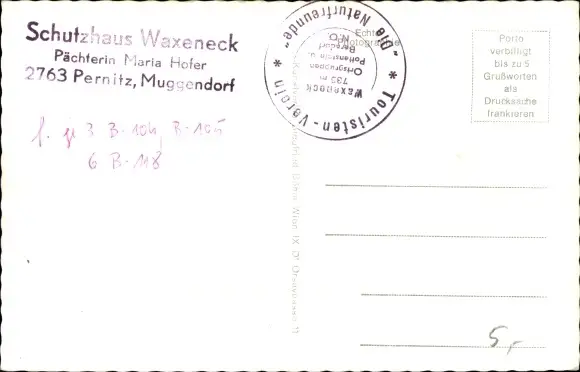 Schutzhaus Waxeneck
Pächterin Maria Hofer
2763 Pernitz, Muggendorf
Touristen-Verein * „Die Naturfreunde" *
Waxeneck
785 m
Ortsgruppen
Pottenstein u.
Berndorf
N.Ö.
Echte
Photographie
Porto
verbilligt
bis zu 5
Grußworten
als
Drucksache
frankieren
3 B-104, B-105
6 B-118
5,-